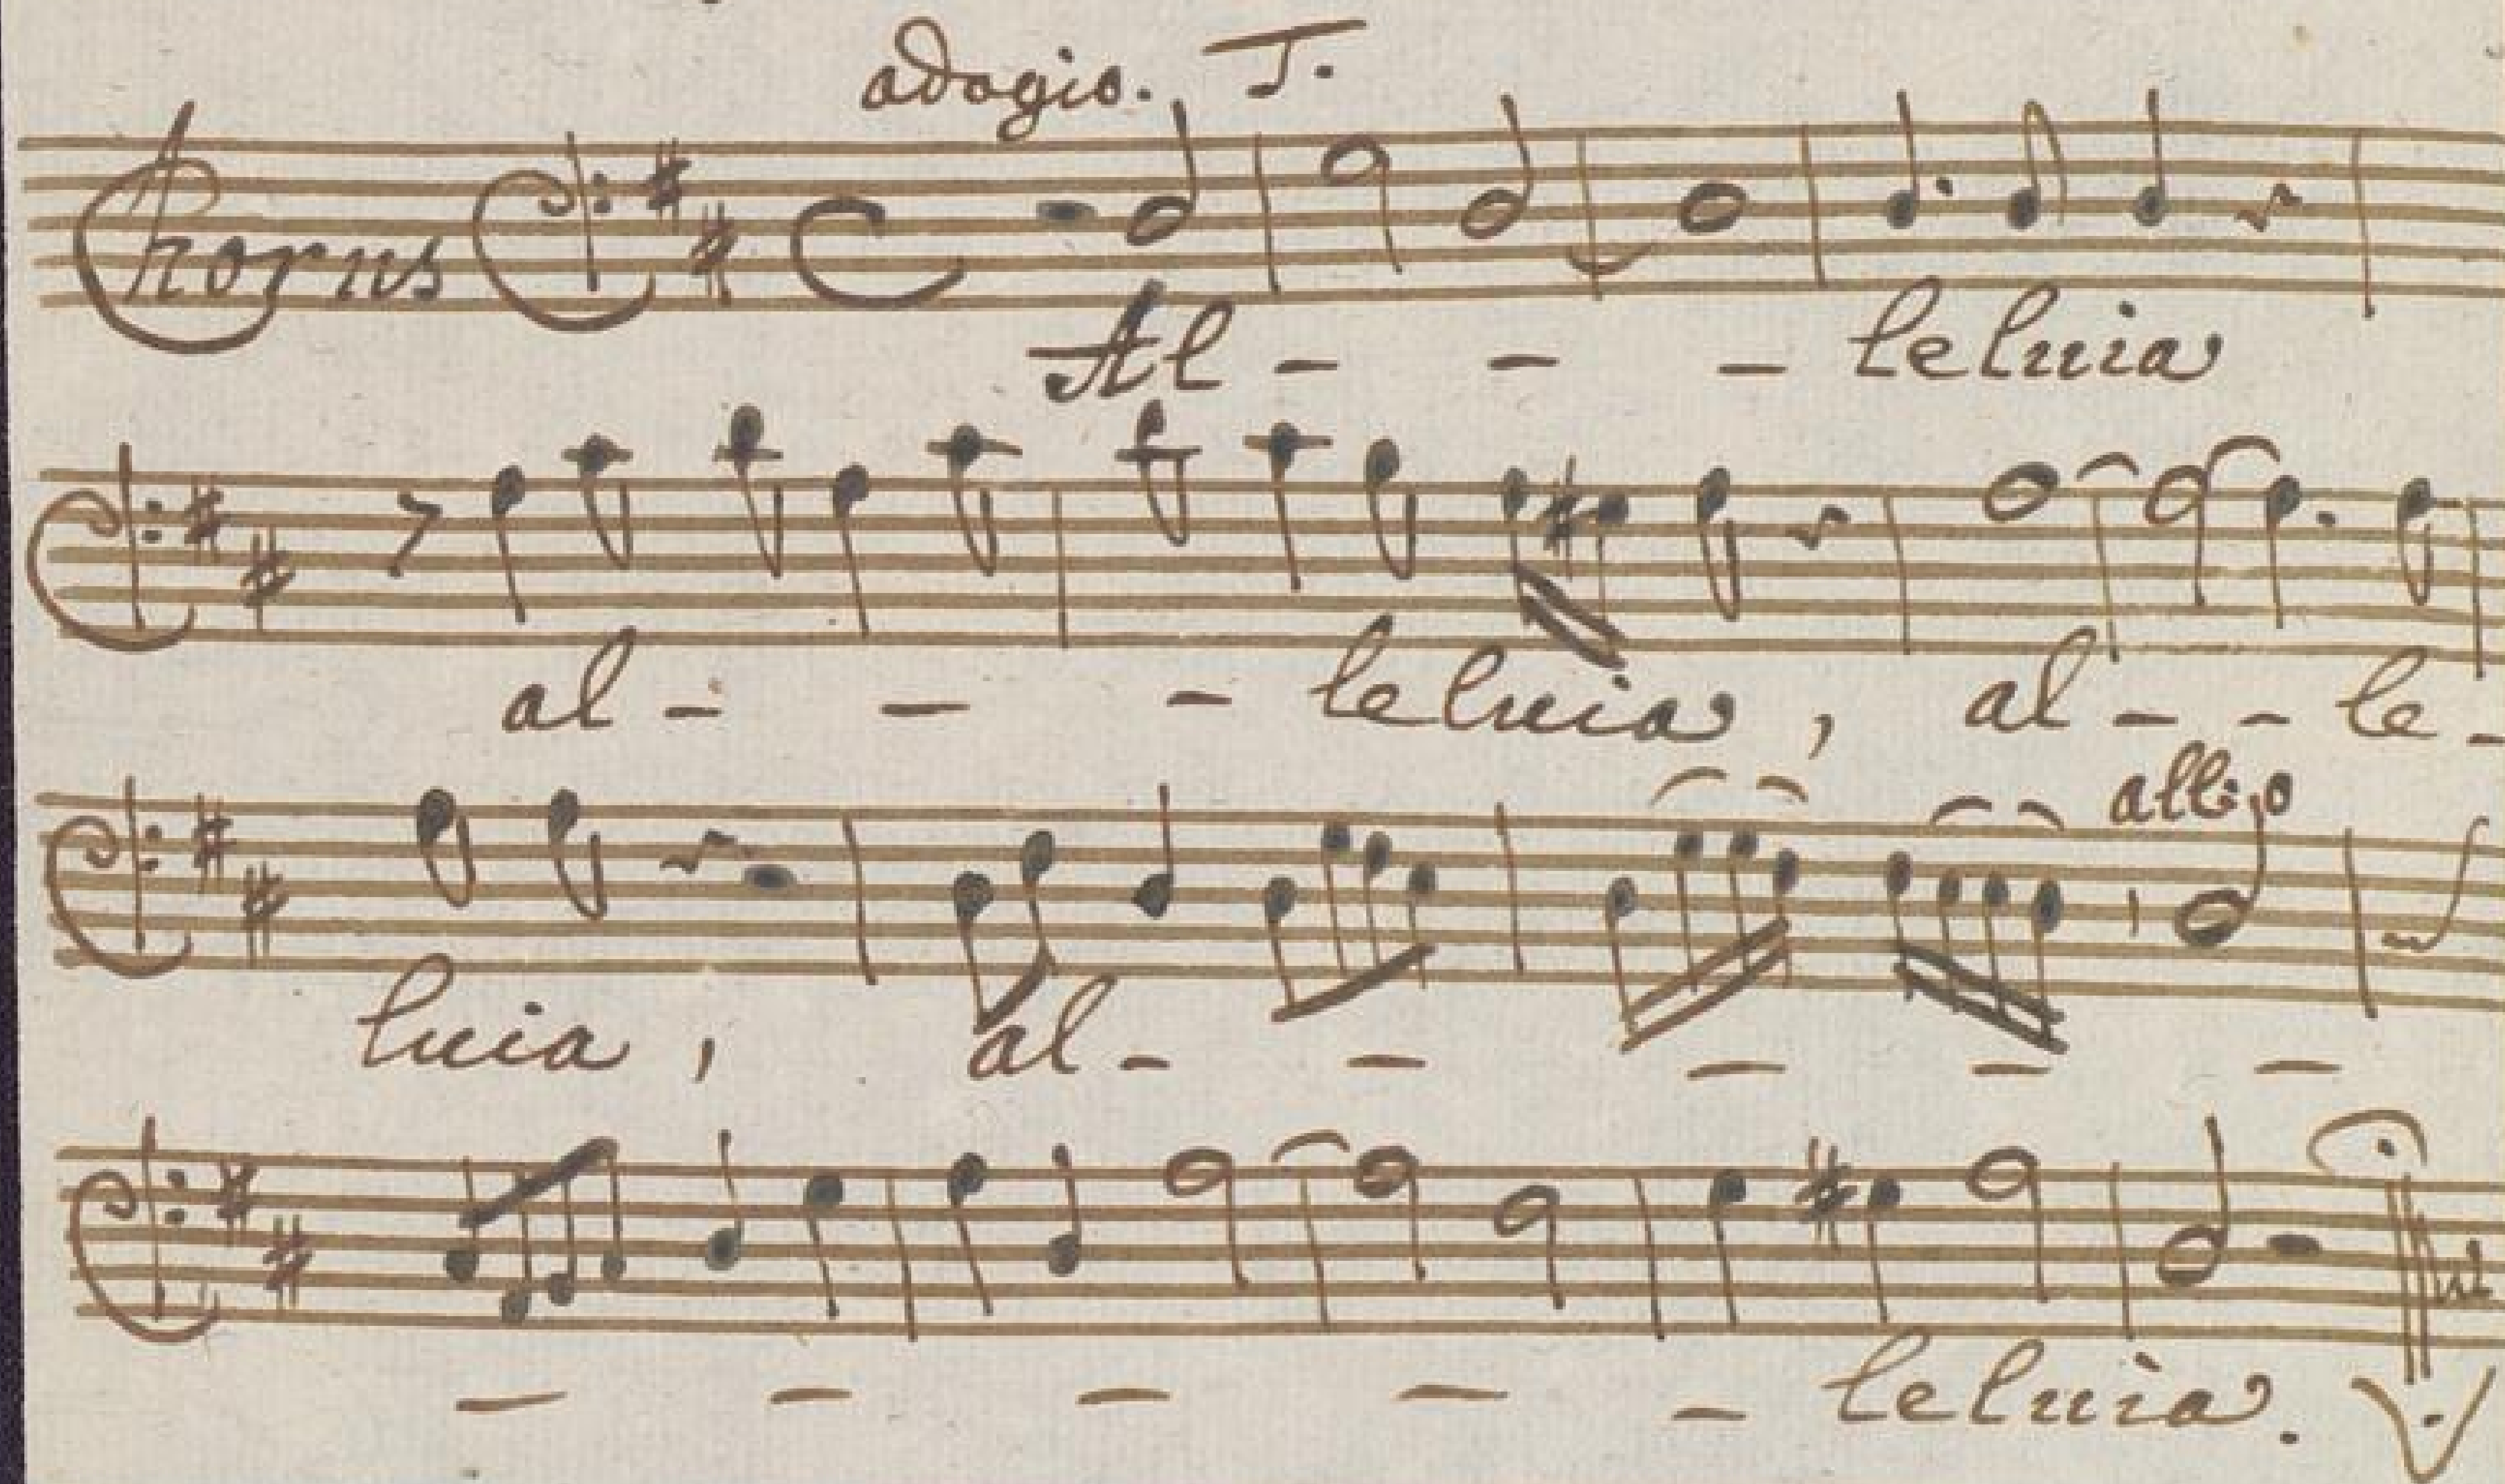 adagio. T.
Chorus
Al - - - leluia
al - - - leluia, al - - le -
all:o
luia, al - - - - -
- - - - - leluia.